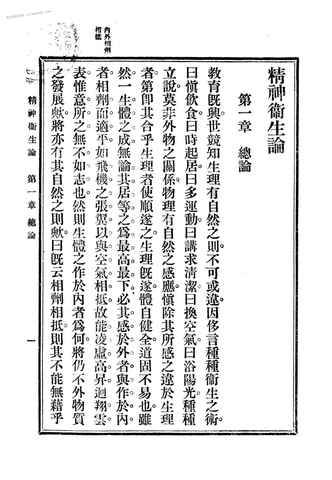 精神衞生論
第一章　總論
敎育旣興世競知生理有自然之則不可或違因侈言種種衞生之術
曰愼飮食曰時起居曰多運動曰講求淸潔曰換空氣曰浴陽光種種
立說莫非外物之關係物理有自然之感應愼除其所感之違於生理
者第卽其合乎生理者使順遂之生理旣遂體自健全道固不易也雖
然一生體之成無論其居等之爲最高最下必其感於外者與作於內
者相劑而適平如飛機之張翼以與空氣相抵故能凌虛高昇迴翔雲
表惟意所之無不如志也然則生體之作於內者爲何將仍不外物質
之發展歟將亦有其自然之則歟曰旣云相劑相抵則其不能無藉乎
內外相劑
相抵
精神衞生論　第一章　總論
一